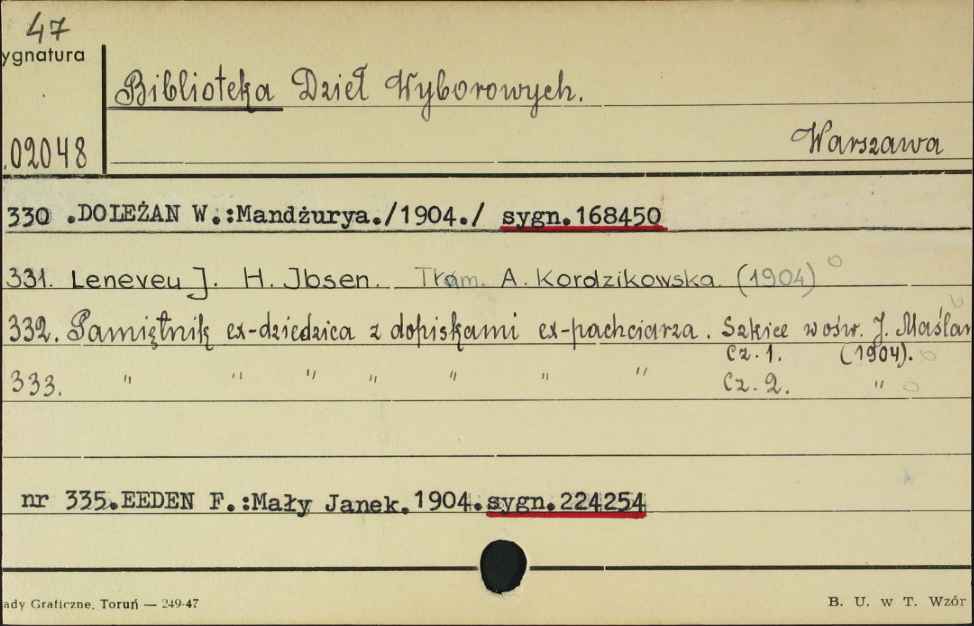 47
ygnatura
Biblioteka Dzieł Wyborowych.
.02048
Warszawa
330 .DOLEŻAN W.:Mandżurya./1904./ sygn.168450
331. Leneveu J. H. Jbsen. Tłóm. A. Kordzikowska. (1904)
332. Pamiętnik ex-dziedzica z dopiskami ex-pachciarza. Szkice w ośw. J. Maślan
Cz. 1. (1904).
333. " " " " " " " Cz. 2. "
nr 335.EEDEN F.:Mały Janek.1904.sygn.224254
ady Graficzne, Toruń — 249-47
B. U. w T. Wzór